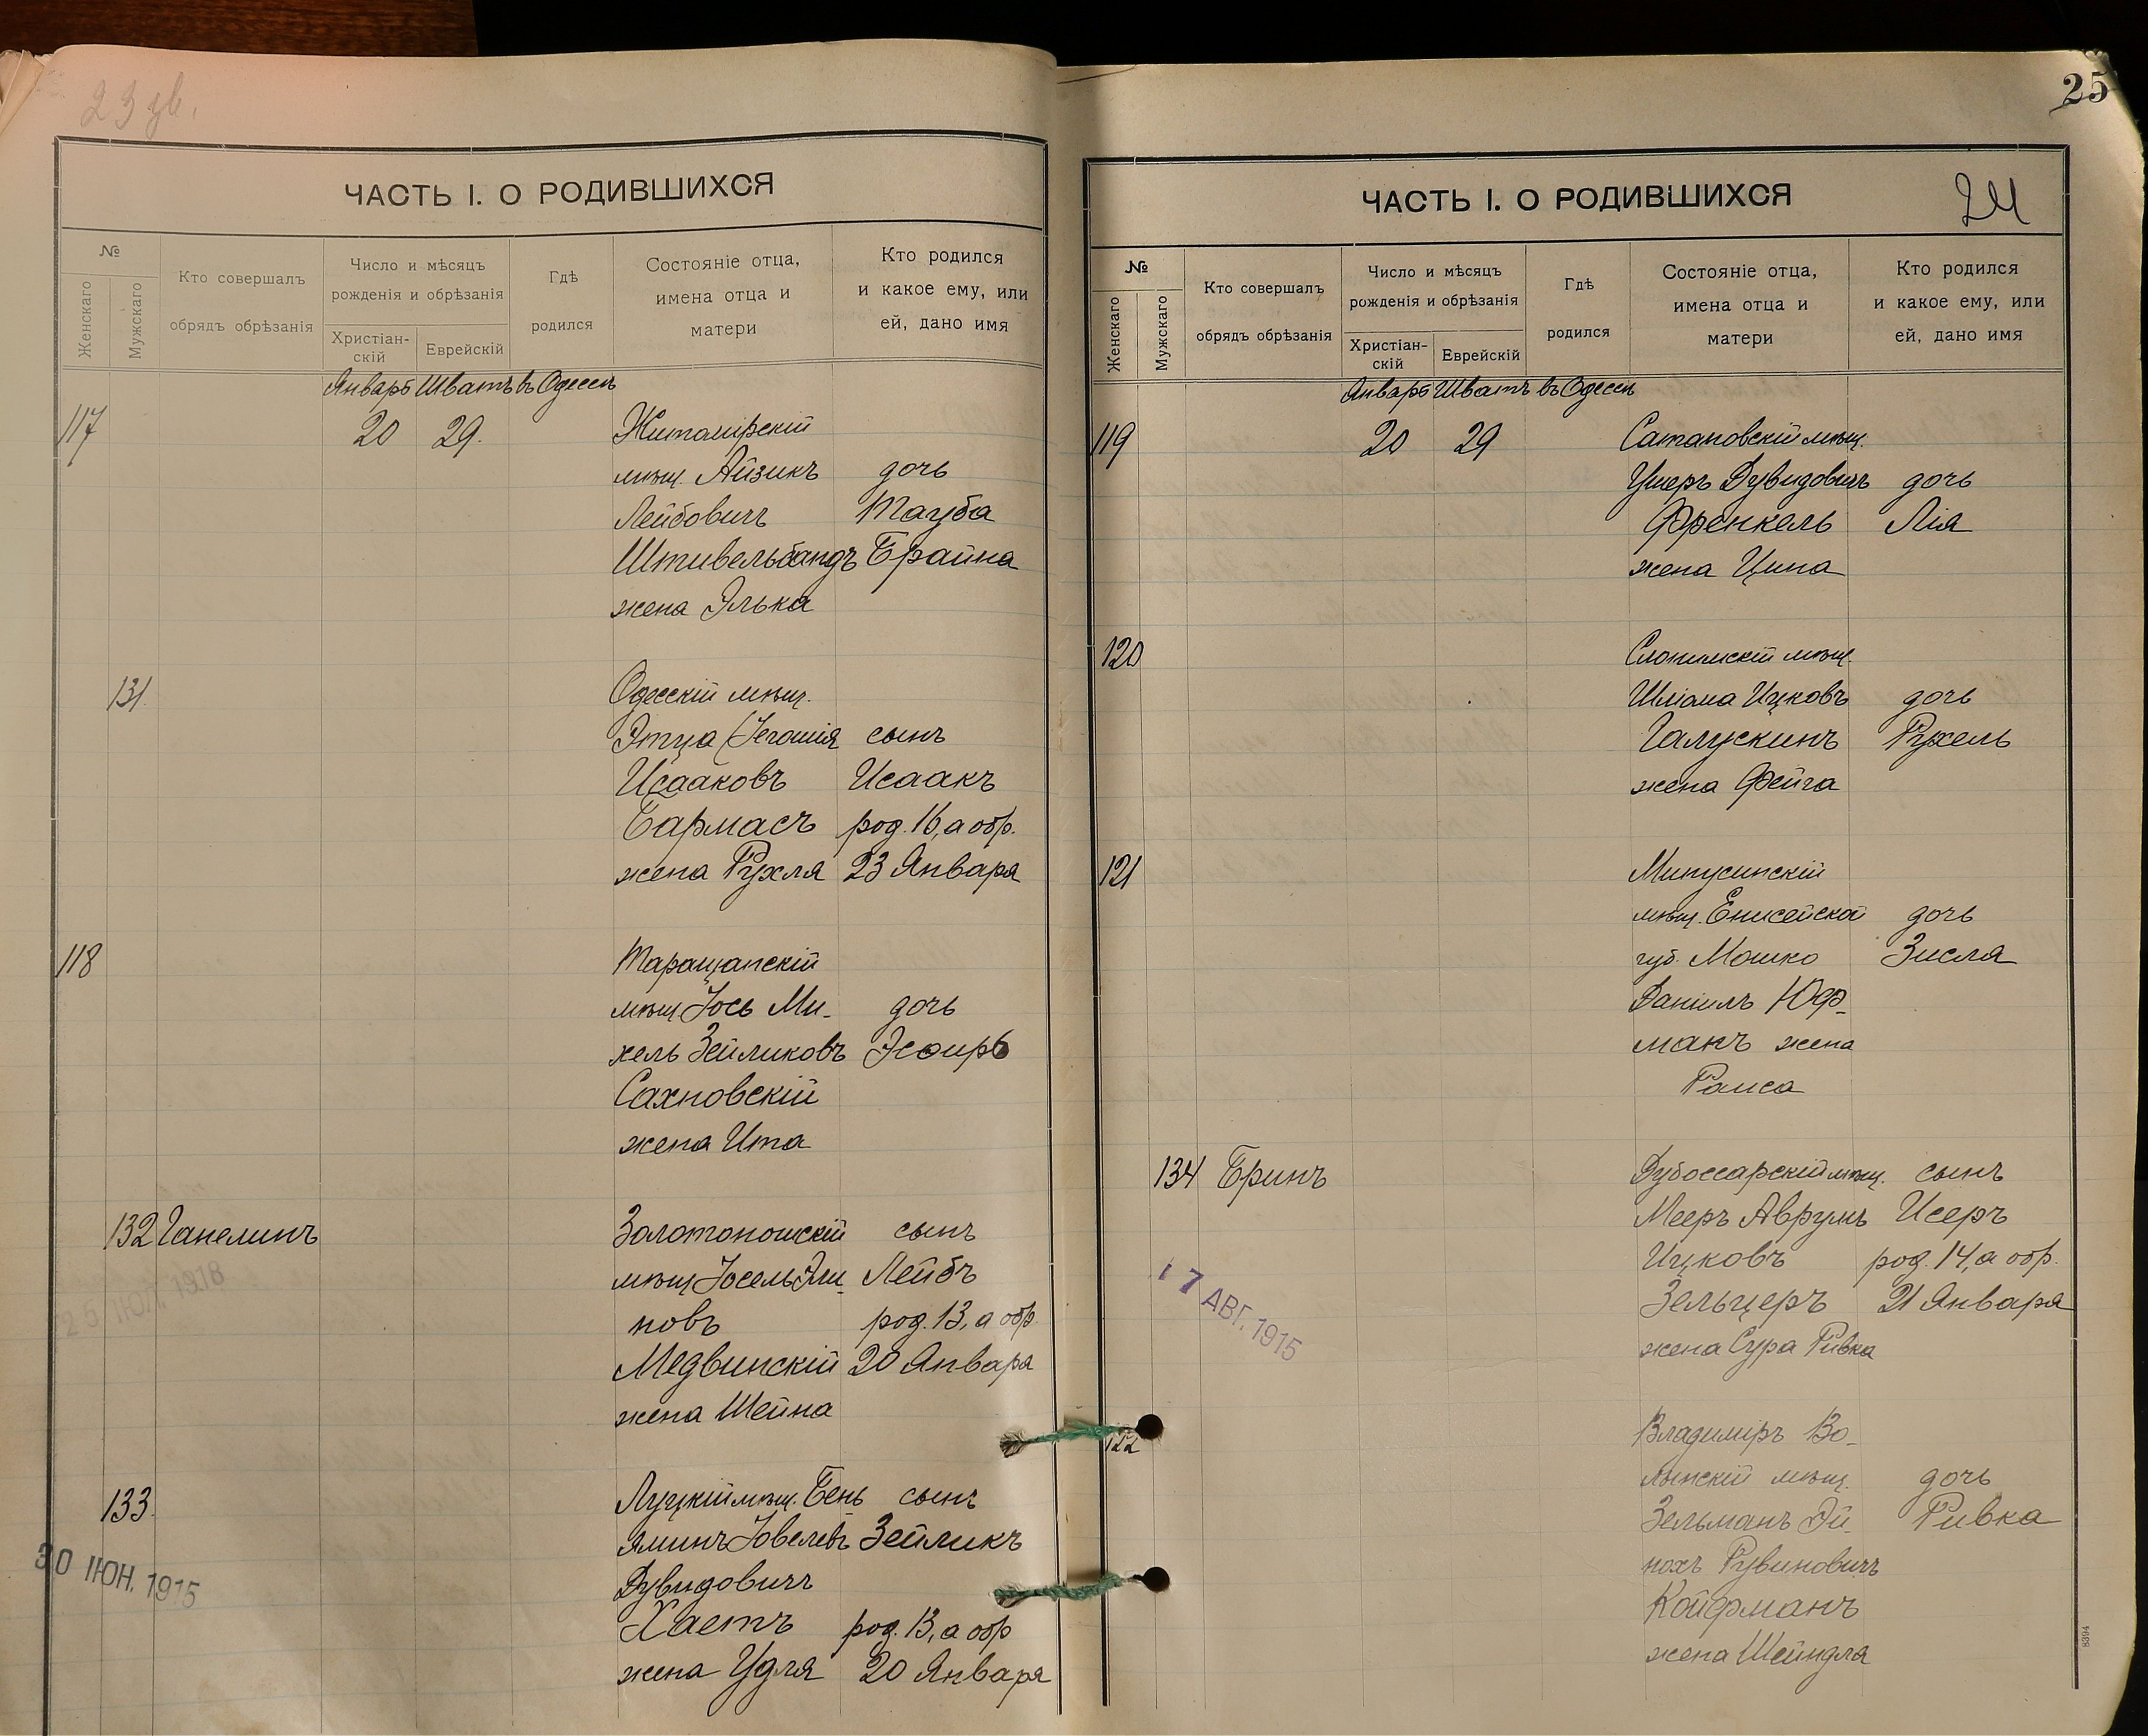 23 зв.
ЧАСТЬ I. О РОДИВШИХСЯ
№
Женскаго
Мужскаго
Кто совершалъ
обрядъ обрѣзанія
Число и мѣсяцъ
рожденія и обрѣзанія
Христіан-
скій
Еврейскій
Гдѣ
родился
Состояніе отца,
имена отца и
матери
Кто родился
и какое ему, или
ей, дано имя
Январь Шватъ въ Одессѣ
117 20 29. Житомірскій
мѣщ. Айзикъ дочь
Лейбовичъ Тауба
Штивельбандъ Брайна
жена Элька
131. Одесскій мѣщ.
Этца (Іегошія сынъ
Исааковъ Исаакъ
Бармасъ род. 16, а обр.
жена Рухля 23 Января
118 Таращанскій
мѣщ Іось Ми- дочь
хель Зейликовъ Эсѳирь
Сахновскій
жена Ита
132 Ганелинъ Золотоношскій сынъ
мѣщ Іосель Эли- Лейбъ
новъ род. 13, а обр.
Медвинскій 20 Января
жена Шейна
25 ІЮЛ. 1918
133. Луцкій мѣщ. Бень сынъ
яминъ Іовелевъ Зейликъ
Дувидовичъ
Хаетъ род. 13, а обр
жена Удля 20 Января
30 ІЮН. 1915
25
ЧАСТЬ I. О РОДИВШИХСЯ
24
№
Женскаго
Мужскаго
Кто совершалъ
обрядъ обрѣзанія
Число и мѣсяцъ
рожденія и обрѣзанія
Христіан-
скій
Еврейскій
Гдѣ
родился
Состояніе отца,
имена отца и
матери
Кто родился
и какое ему, или
ей, дано имя
Январь Шватъ въ Одессѣ
119 20 29 Сатановскій мѣщ.
Ушеръ Дувидовичъ дочь
Френкель Лія
жена Ципа
120 Слонимскій мѣщ.
Шліома Ицковъ дочь
Галускинъ Рухель
жена Фейга
121 Минусинскій
мѣщ. Енисейской дочь
губ. Мошко Зисля
Даніилъ Юф-
манъ жена
Раиса
134 Бринъ Дубоссарскій мѣщ. сынъ
Мееръ Аврумъ Исеръ
Ицковъ род. 14, а обр.
Зельцеръ 21 Января
жена Сура Ривка
17 АВГ. 1915
122 Владиміръ Во-
лынскій мѣщ. дочь
Зельманъ Эй- Ривка
нохъ Рувиновичъ
Койфманъ
жена Шейндля
8394